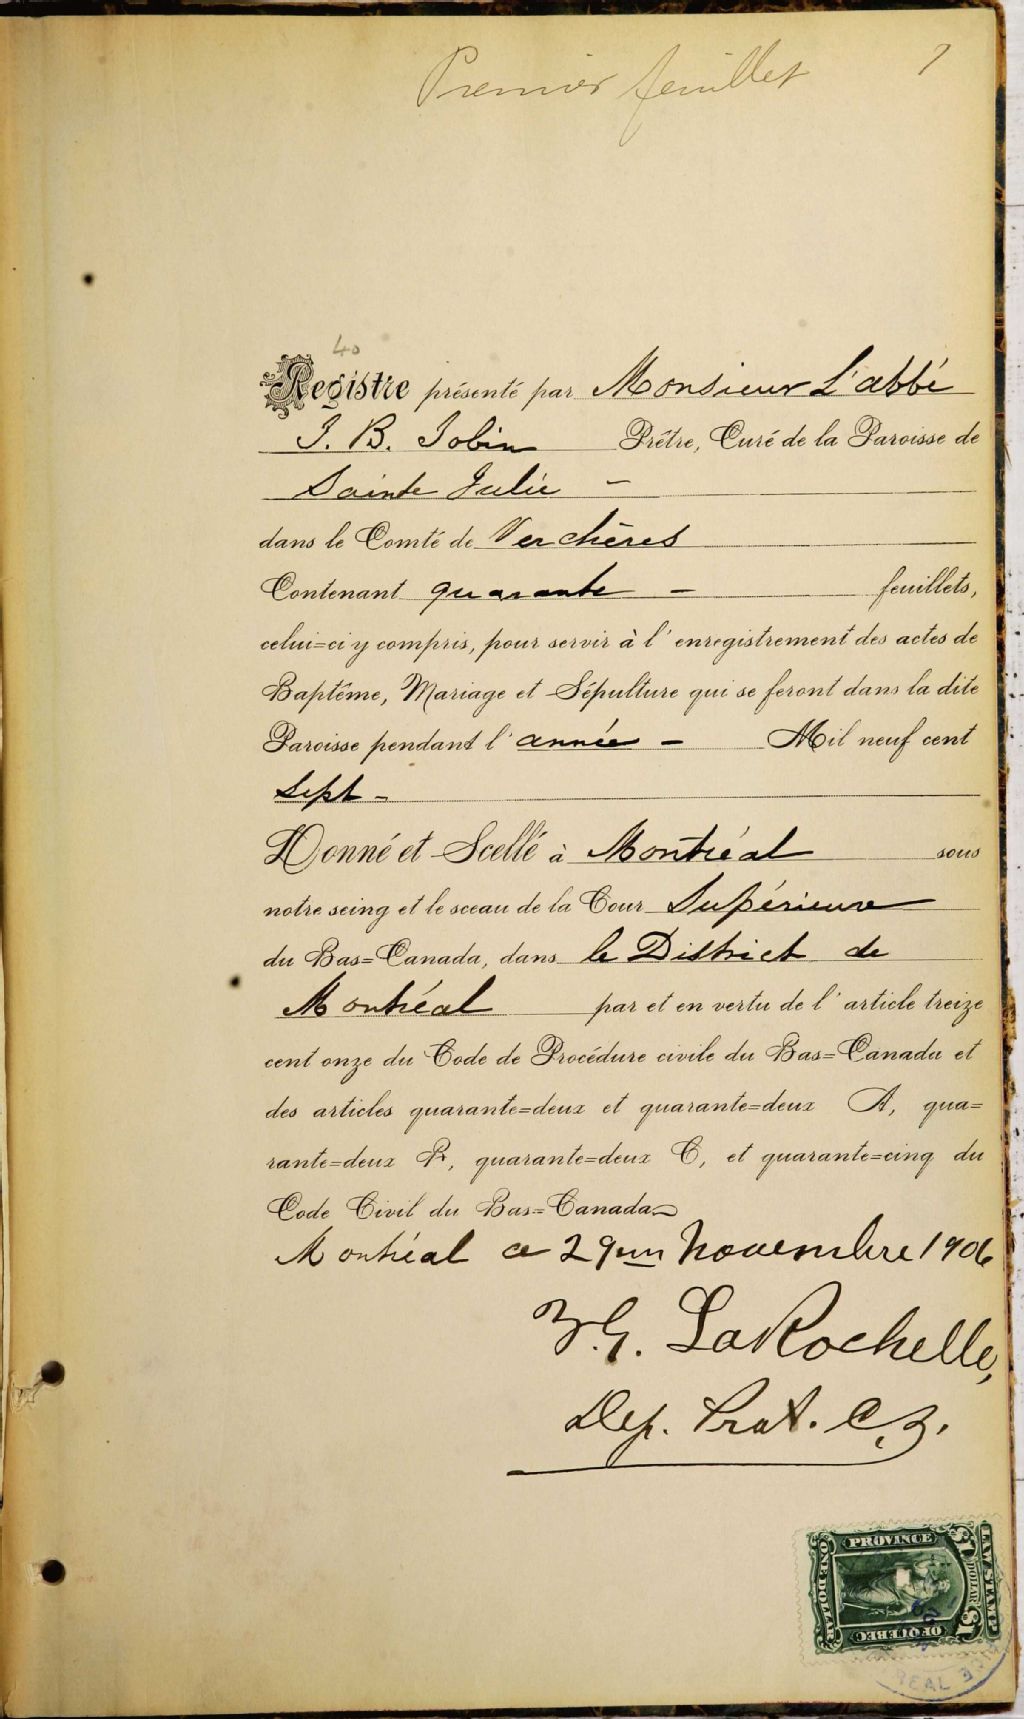 Premier feuillet 1
40
Registre présenté par Monsieur L'abbé
J. B. Jobin Prêtre, Curé de la Paroisse de
Sainte Julie -
dans le Comté de Verchères
Contenant quarante - feuillets,
celui=ci y compris, pour servir à l'enregistrement des actes de
Baptême, Mariage et Sépulture qui se feront dans la dite
Paroisse pendant l'année - Mil neuf cent
Sept -
Donné et Scellé à Montréal sous
notre seing et le sceau de la Cour Supérieure
du Bas=Canada, dans le District de
Montréal par et en vertu de l'article treize
cent onze du Code de Procédure civile du Bas=Canada et
des articles quarante=deux et quarante=deux A, qua=
rante=deux B, quarante=deux C, et quarante=cinq du
Code Civil du Bas=Canada
Montréal ce 29 Novembre 1906
G. LaRochelle,
Dep. Prot. C.S.
LAW STAMP
$1 DOLLAR $1
PROVINCE
OF QUEBEC
ONE DOLLAR
29
REAL